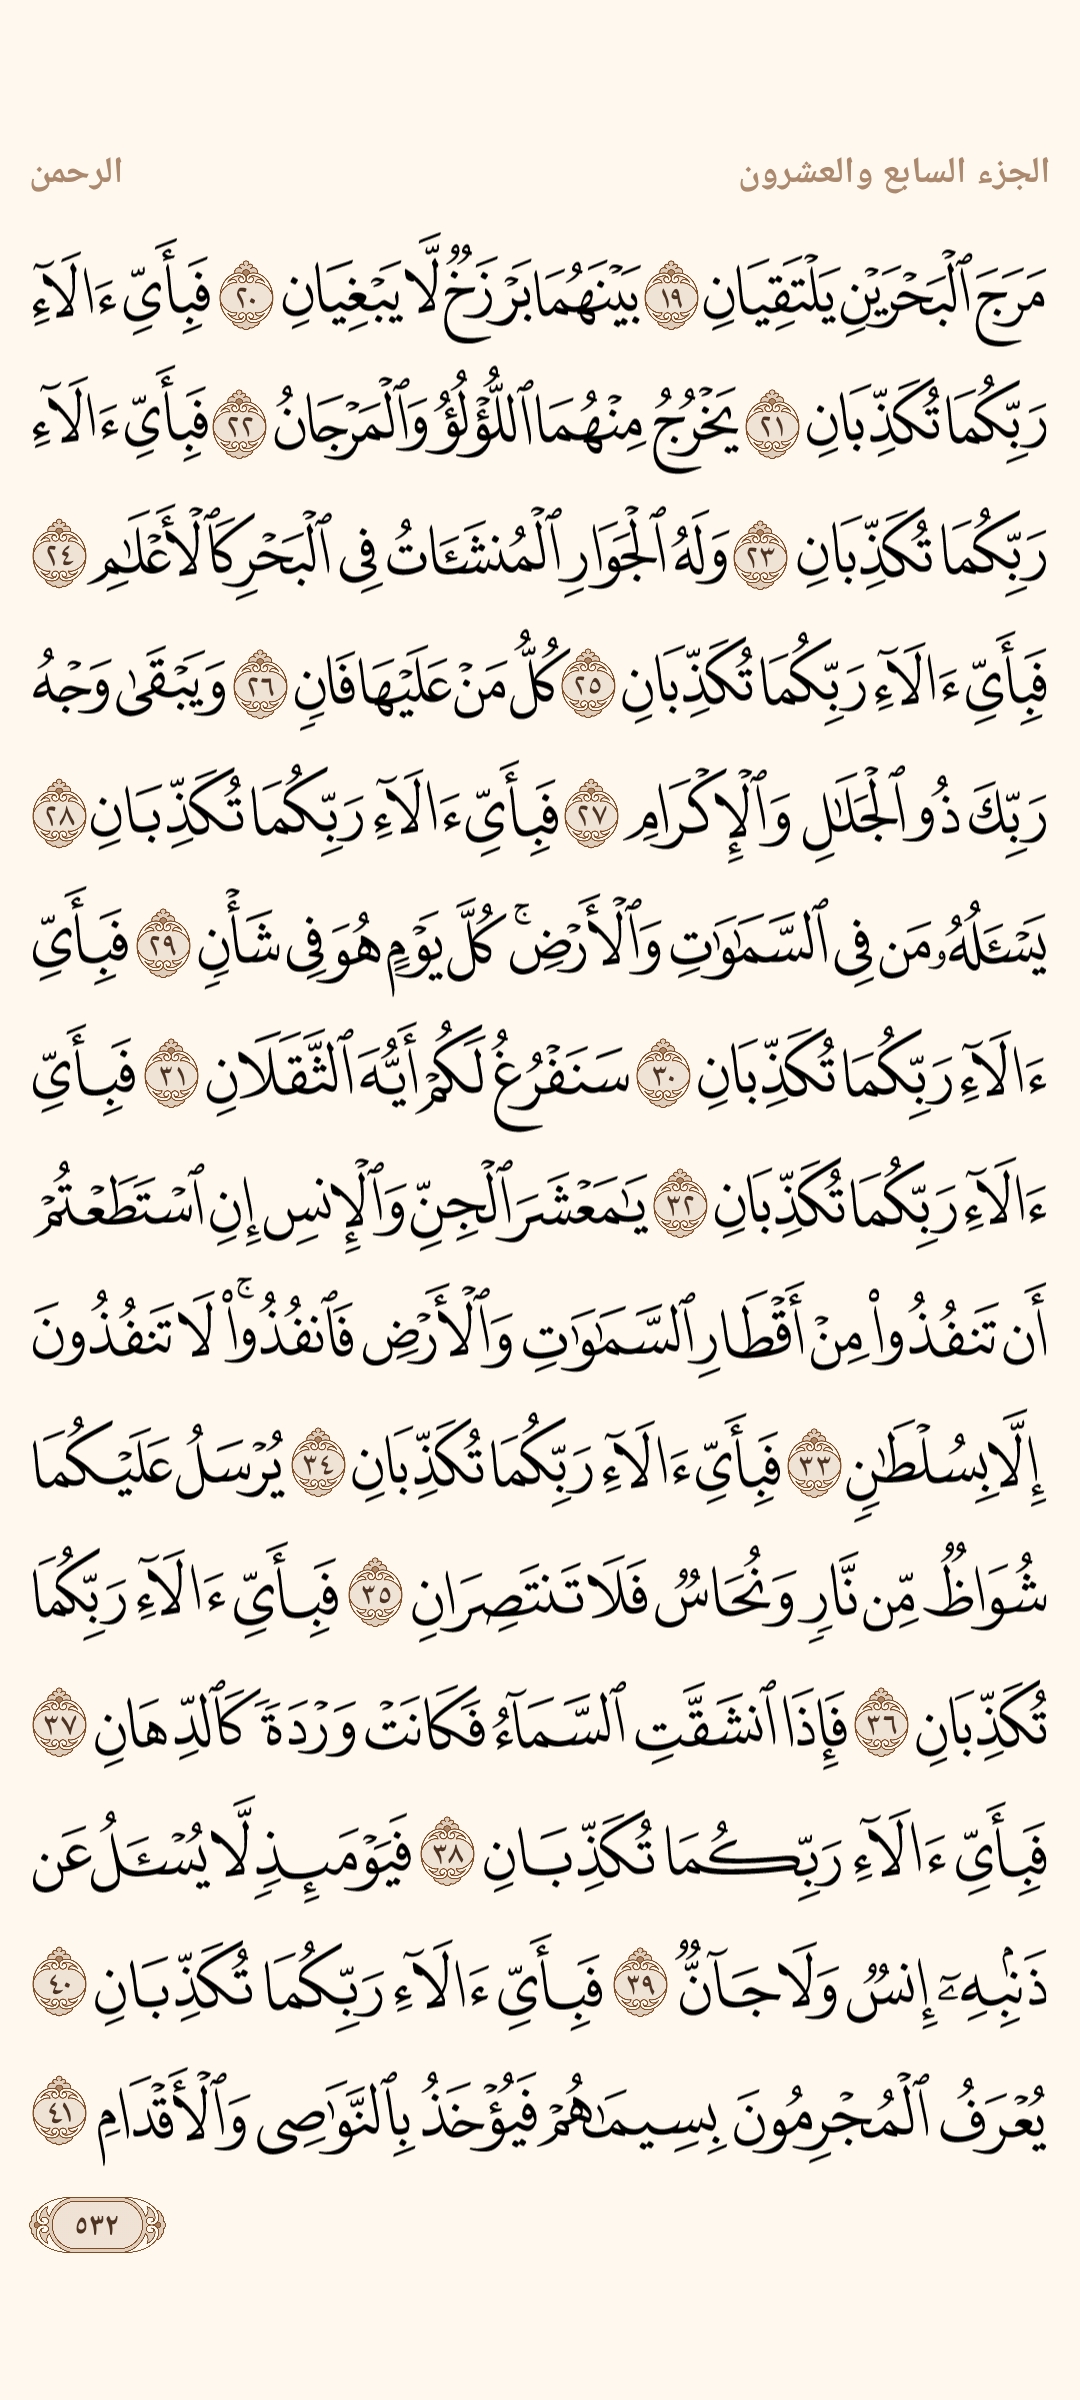 الجزء السابع والعشرون
الرحمن
مَرَجَ ٱلْبَحْرَيْنِ يَلْتَقِيَانِ ١٩ بَيْنَهُمَا بَرْزَخٌ لَّا يَبْغِيَانِ ٢٠ فَبِأَىِّ ءَالَآءِ
رَبِّكُمَا تُكَذِّبَانِ ٢١ يَخْرُجُ مِنْهُمَا ٱللُّؤْلُؤُ وَٱلْمَرْجَانُ ٢٢ فَبِأَىِّ ءَالَآءِ
رَبِّكُمَا تُكَذِّبَانِ ٢٣ وَلَهُ ٱلْجَوَارِ ٱلْمُنشَـَٔاتُ فِى ٱلْبَحْرِ كَٱلْأَعْلَـٰمِ ٢٤
فَبِأَىِّ ءَالَآءِ رَبِّكُمَا تُكَذِّبَانِ ٢٥ كُلُّ مَنْ عَلَيْهَا فَانٍ ٢٦ وَيَبْقَىٰ وَجْهُ
رَبِّكَ ذُو ٱلْجَلَـٰلِ وَٱلْإِكْرَامِ ٢٧ فَبِأَىِّ ءَالَآءِ رَبِّكُمَا تُكَذِّبَانِ ٢٨
يَسْـَٔلُهُۥ مَن فِى ٱلسَّمَـٰوَٰتِ وَٱلْأَرْضِ ۚ كُلَّ يَوْمٍ هُوَ فِى شَأْنٍ ٢٩ فَبِأَىِّ
ءَالَآءِ رَبِّكُمَا تُكَذِّبَانِ ٣٠ سَنَفْرُغُ لَكُمْ أَيُّهَ ٱلثَّقَلَانِ ٣١ فَبِأَىِّ
ءَالَآءِ رَبِّكُمَا تُكَذِّبَانِ ٣٢ يَـٰمَعْشَرَ ٱلْجِنِّ وَٱلْإِنسِ إِنِ ٱسْتَطَعْتُمْ
أَن تَنفُذُوا۟ مِنْ أَقْطَارِ ٱلسَّمَـٰوَٰتِ وَٱلْأَرْضِ فَٱنفُذُوا۟ ۚ لَا تَنفُذُونَ
إِلَّا بِسُلْطَـٰنٍ ٣٣ فَبِأَىِّ ءَالَآءِ رَبِّكُمَا تُكَذِّبَانِ ٣٤ يُرْسَلُ عَلَيْكُمَا
شُوَاظٌ مِّن نَّارٍ وَنُحَاسٌ فَلَا تَنتَصِرَانِ ٣٥ فَبِأَىِّ ءَالَآءِ رَبِّكُمَا
تُكَذِّبَانِ ٣٦ فَإِذَا ٱنشَقَّتِ ٱلسَّمَآءُ فَكَانَتْ وَرْدَةً كَٱلدِّهَانِ ٣٧
فَبِأَىِّ ءَالَآءِ رَبِّكُمَا تُكَذِّبَانِ ٣٨ فَيَوْمَئِذٍ لَّا يُسْـَٔلُ عَن
ذَنۢبِهِۦٓ إِنسٌ وَلَا جَآنٌّ ٣٩ فَبِأَىِّ ءَالَآءِ رَبِّكُمَا تُكَذِّبَانِ ٤٠
يُعْرَفُ ٱلْمُجْرِمُونَ بِسِيمَـٰهُمْ فَيُؤْخَذُ بِٱلنَّوَٰصِى وَٱلْأَقْدَامِ ٤١
٥٣٢